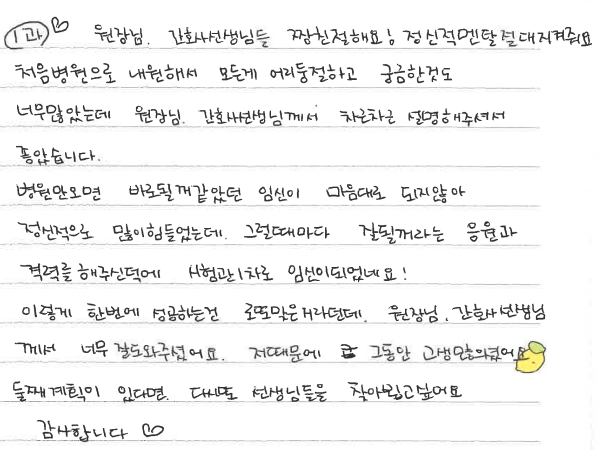 1과 ♡ 원장님. 간호사선생님들 짱친절해요! 정신적멘탈절대지켜줘요
처음병원으로 내원해서 모든게 어리둥절하고 궁금한것도
너무많았는데 원장님. 간호사선생님께서 차근차근 설명해주셔서
좋았습니다.
병원만오면 바로될꺼같았던 임신이 마음대로 되지않아
정신적으로 많이힘들었는데. 그럴때마다 잘될꺼라는 응원과
격력를해주신덕에 시험관1차로 임신이되었네요!
이렇게 한번에 성공하는건 로또맞은거라던데. 원장님. 간호사선생님
께서 너무 잘도와주셨어요. 저때문에 그동안 고생많의셨어요
둘째계획이 있다면. 다시또 선생님들을 찾아뵙고싶어요
감사합니다 ♡